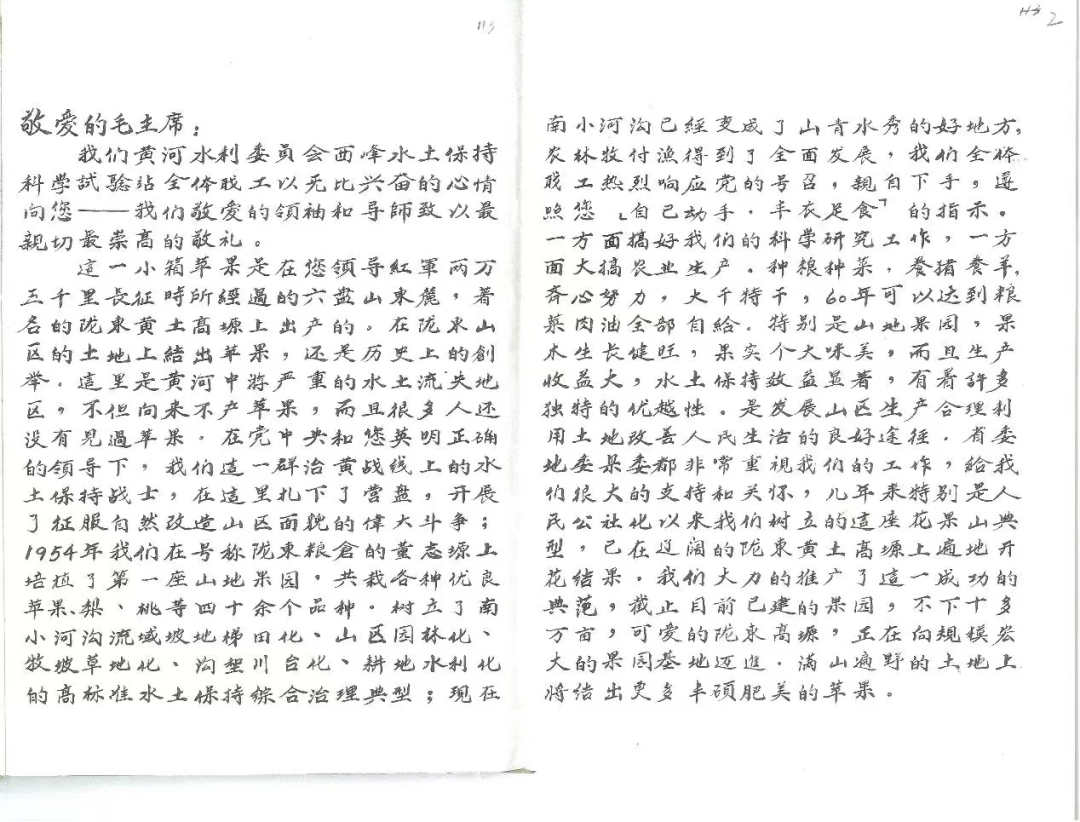 113
敬爱的毛主席：
我们黄河水利委員会西峰水土保持
科学試驗站全体戝工以无比兴奋的心情
向您——我们敬爱的領袖和导師致以最
親切最崇高的敬礼。
這一小箱苹果是在您領导紅軍两万
五千里長征時所經過的六盘山東麓，著
名的陇東黄土高塬上出产的。在陇東山
区的土地上結出苹果，还是历史上的創
举．這里是黄河中游严重的水土流失地
区，不但向来不产苹果，而且很多人还
没有見過苹果．在党中央和您英明正确
的領导下，我们這一群治黄战线上的水
土保持战士，在這里扎下了营盘，开展
了征服自然改造山区面貌的偉大斗争；
1954年我们在号称陇東粮倉的董志塬上
培植了第一座山地果园，共栽各种优良
苹果、梨、桃等四十余个品种．树立了南
小河沟流域坡地梯田化、山区园林化、
牧坡草地化、沟壑川台化、耕地水利化
的高标准水土保持綜合治理典型；現在
113 2
南小河沟已經变成了山青水秀的好地方，
农林牧付漁得到了全面发展，我们全体
戝工热烈响应党的号召，親自下手，遵
照您「自己动手．丰衣足食」的指示。
一方面搞好我们的科学研究工作，一方
面大搞农业生产．种粮种菜，養猪養羊，
齐心努力，大干特干，60年可以达到粮
菜肉油全部自給．特别是山地果园，果
木生长健旺，果实个大味美，而且生产
收益大，水土保持效益显著，有着許多
独特的优越性．是发展山区生产合理利
用土地改善人民生活的良好途径．省委
地委县委都非常重視我们的工作，給我
们很大的支持和关怀，几年来特别是人
民公社化以来我们树立的這座花果山典
型，已在辽阔的陇東黄土高塬上遍地开
花結果．我们大力的推广了這一成功的
典范，截止目前已建的果园，不下十多
万亩，可爱的陇東高塬，正在向規模宏
大的果园基地迈進．满山遍野的土地上
将结出更多丰硕肥美的苹果。